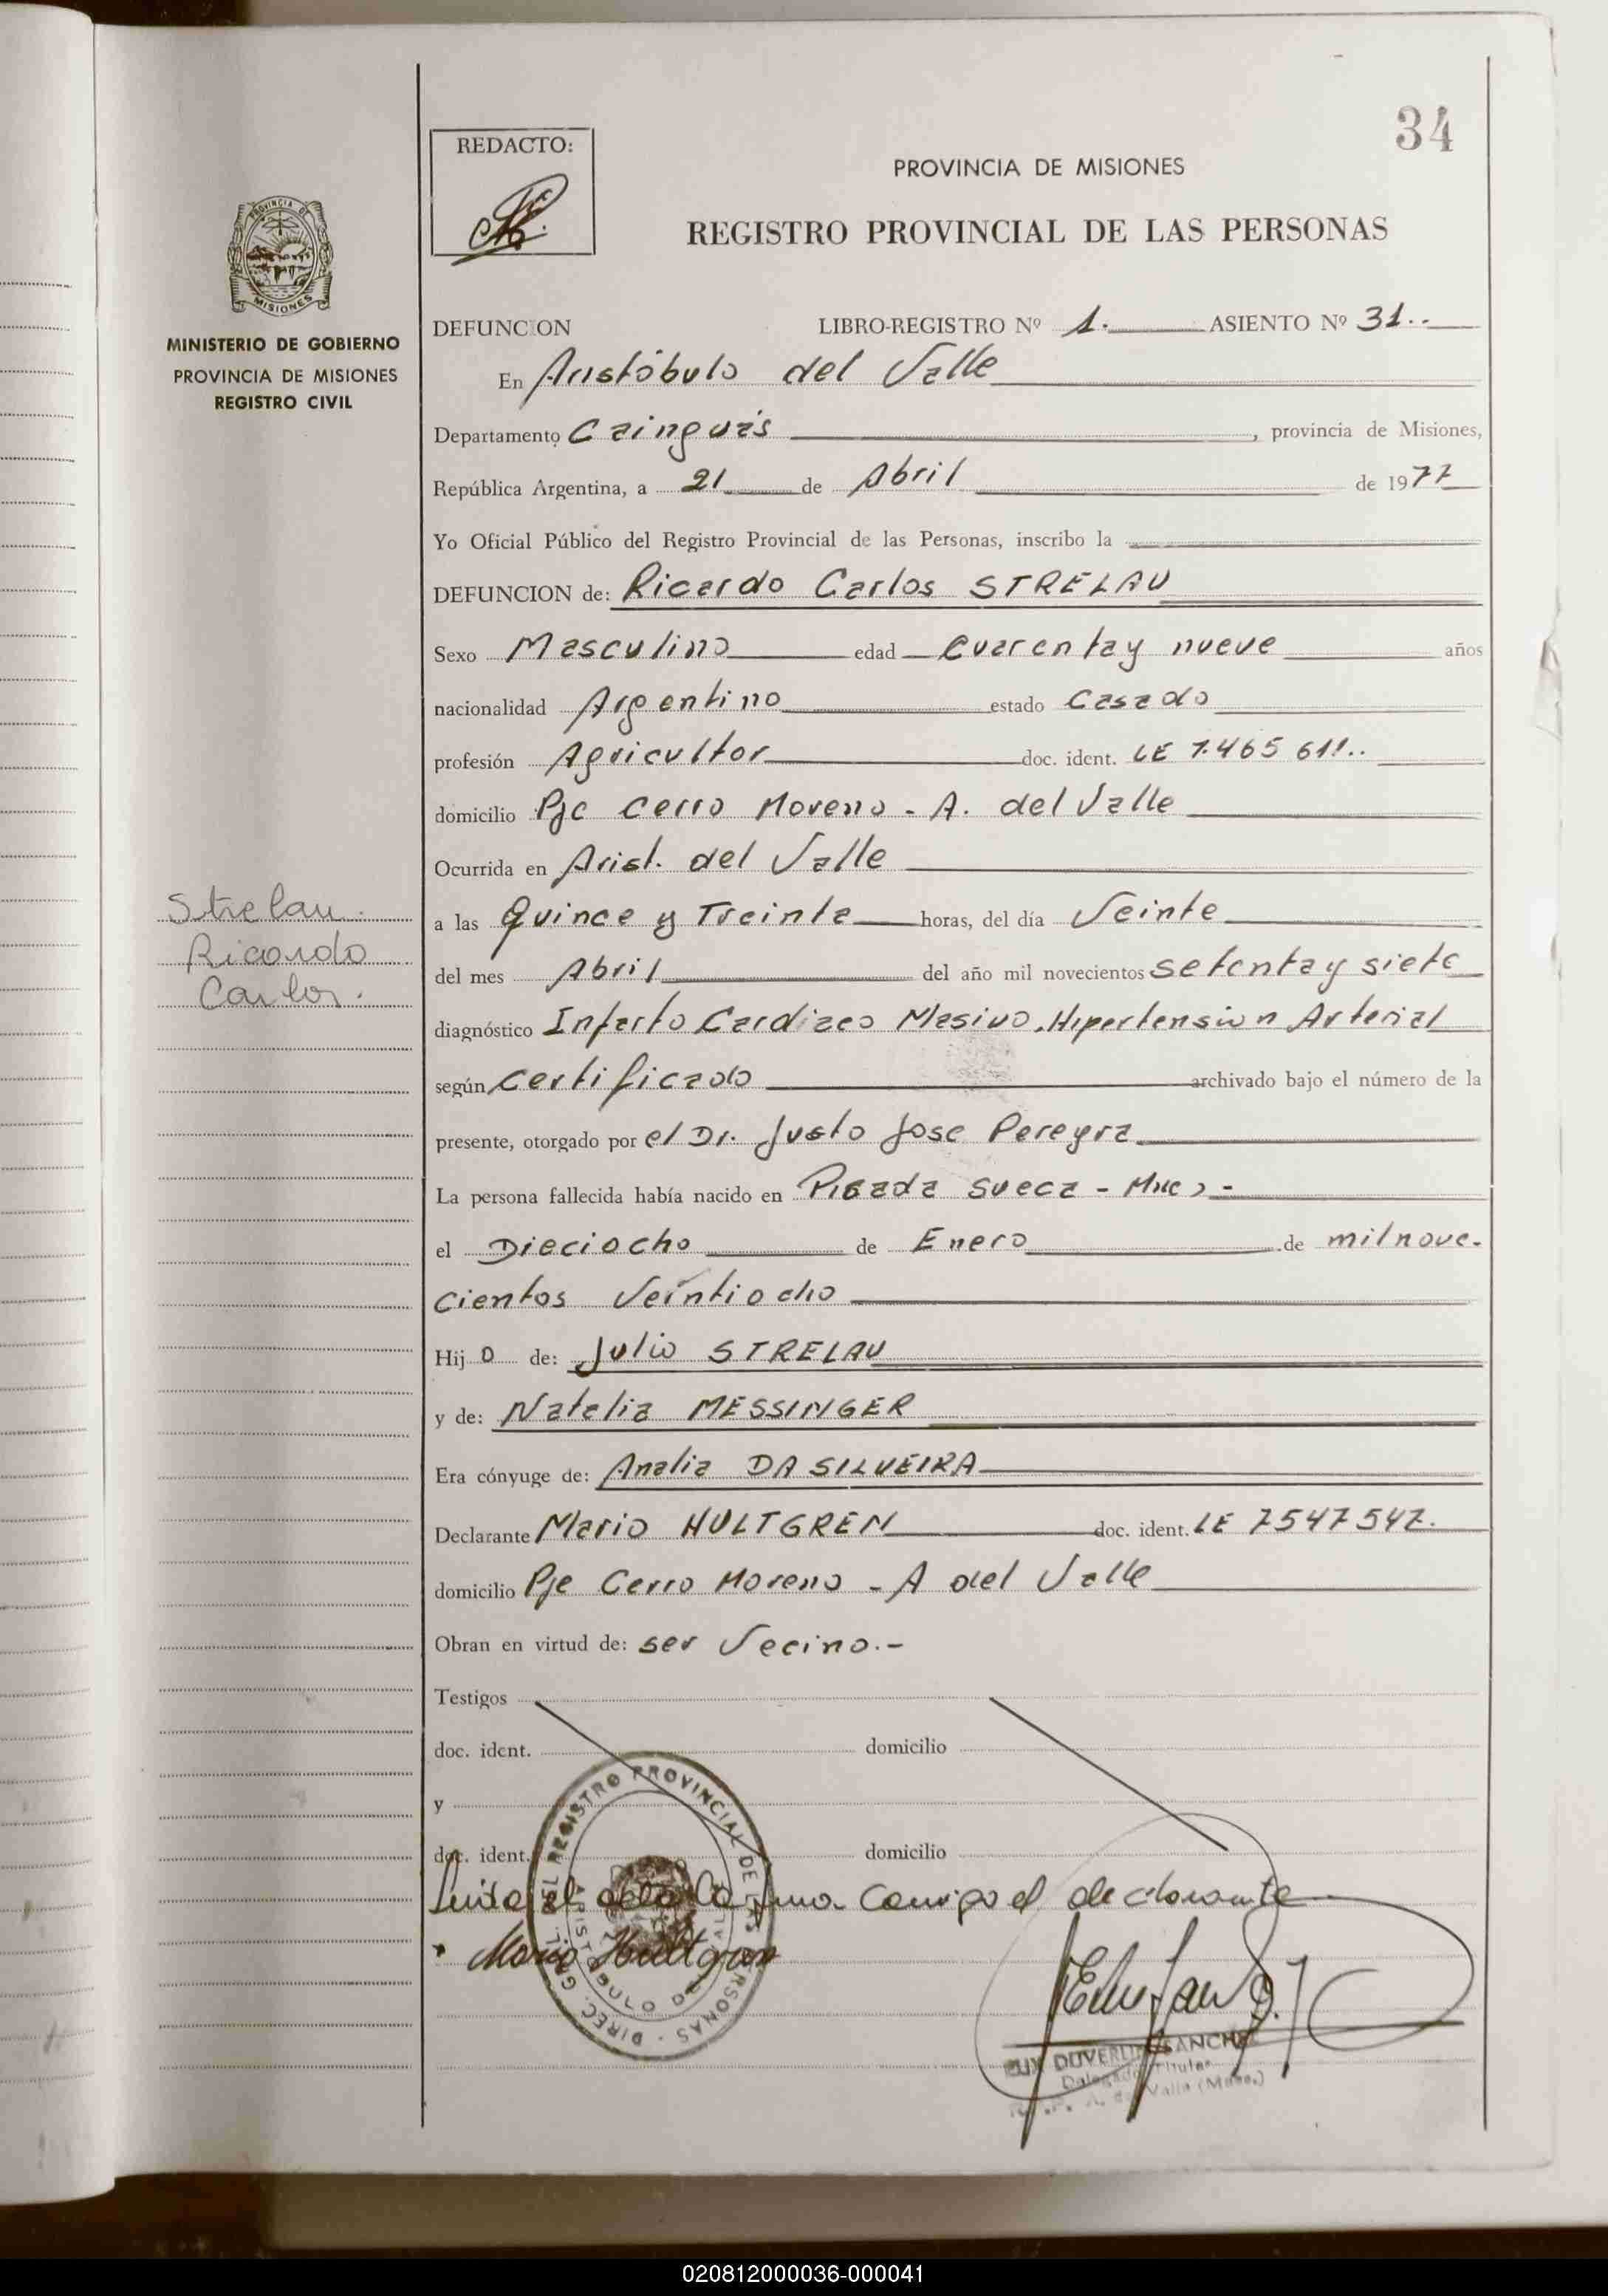 34
REDACTO:
PROVINCIA DE MISIONES
REGISTRO PROVINCIAL DE LAS PERSONAS
PROVINCIA DE
MISIONES
MINISTERIO DE GOBIERNO
PROVINCIA DE MISIONES
REGISTRO CIVIL
DEFUNCION LIBRO-REGISTRO Nº 1. ASIENTO Nº 31..
En Aristóbulo del Valle
Departamento Cainguás, provincia de Misiones,
República Argentina, a 21 de Abril de 1977
Yo Oficial Público del Registro Provincial de las Personas, inscribo la
DEFUNCION de: Ricardo Carlos STRELAU
Sexo Masculino edad Cuarenta y nueve años
nacionalidad Argentino estado Casado
profesión Agricultor doc. ident. LE 7.465 611..
domicilio Pje Cerro Moreno - A. del Valle
Ocurrida en Arist. del Valle
Strelau.
Ricardo
Carlos.
a las Quince y Treinta horas, del día Veinte
del mes Abril del año mil novecientos setenta y siete
diagnóstico Infarto Cardiaco Masivo. Hipertension Arterial
según Certificado archivado bajo el número de la
presente, otorgado por el Dr. Justo Jose Pereyra
La persona fallecida había nacido en Picada Sueca -
el Dieciocho de Enero de mil nove-
cientos Veintiocho
Hijo de: Julio STRELAU
y de: Natalia MESSINGER
Era cónyuge de: Analia DA SILVEIRA
Declarante Mario HULTGREN doc. ident. LE 7547547.
domicilio Pje Cerro Moreno - A del Valle
Obran en virtud de: ser Vecino.-
Testigos
doc. ident. domicilio
y
doc. ident. domicilio
el acta la firma conmigo el declarante
Mario Hultgren
DIREC. GRAL. DEL REGISTRO PROVINCIAL DE LAS PERSONAS
DUVERLI SANCHE
Delegado Titular
A. del Valle (Mnes.)
020812000036-000041